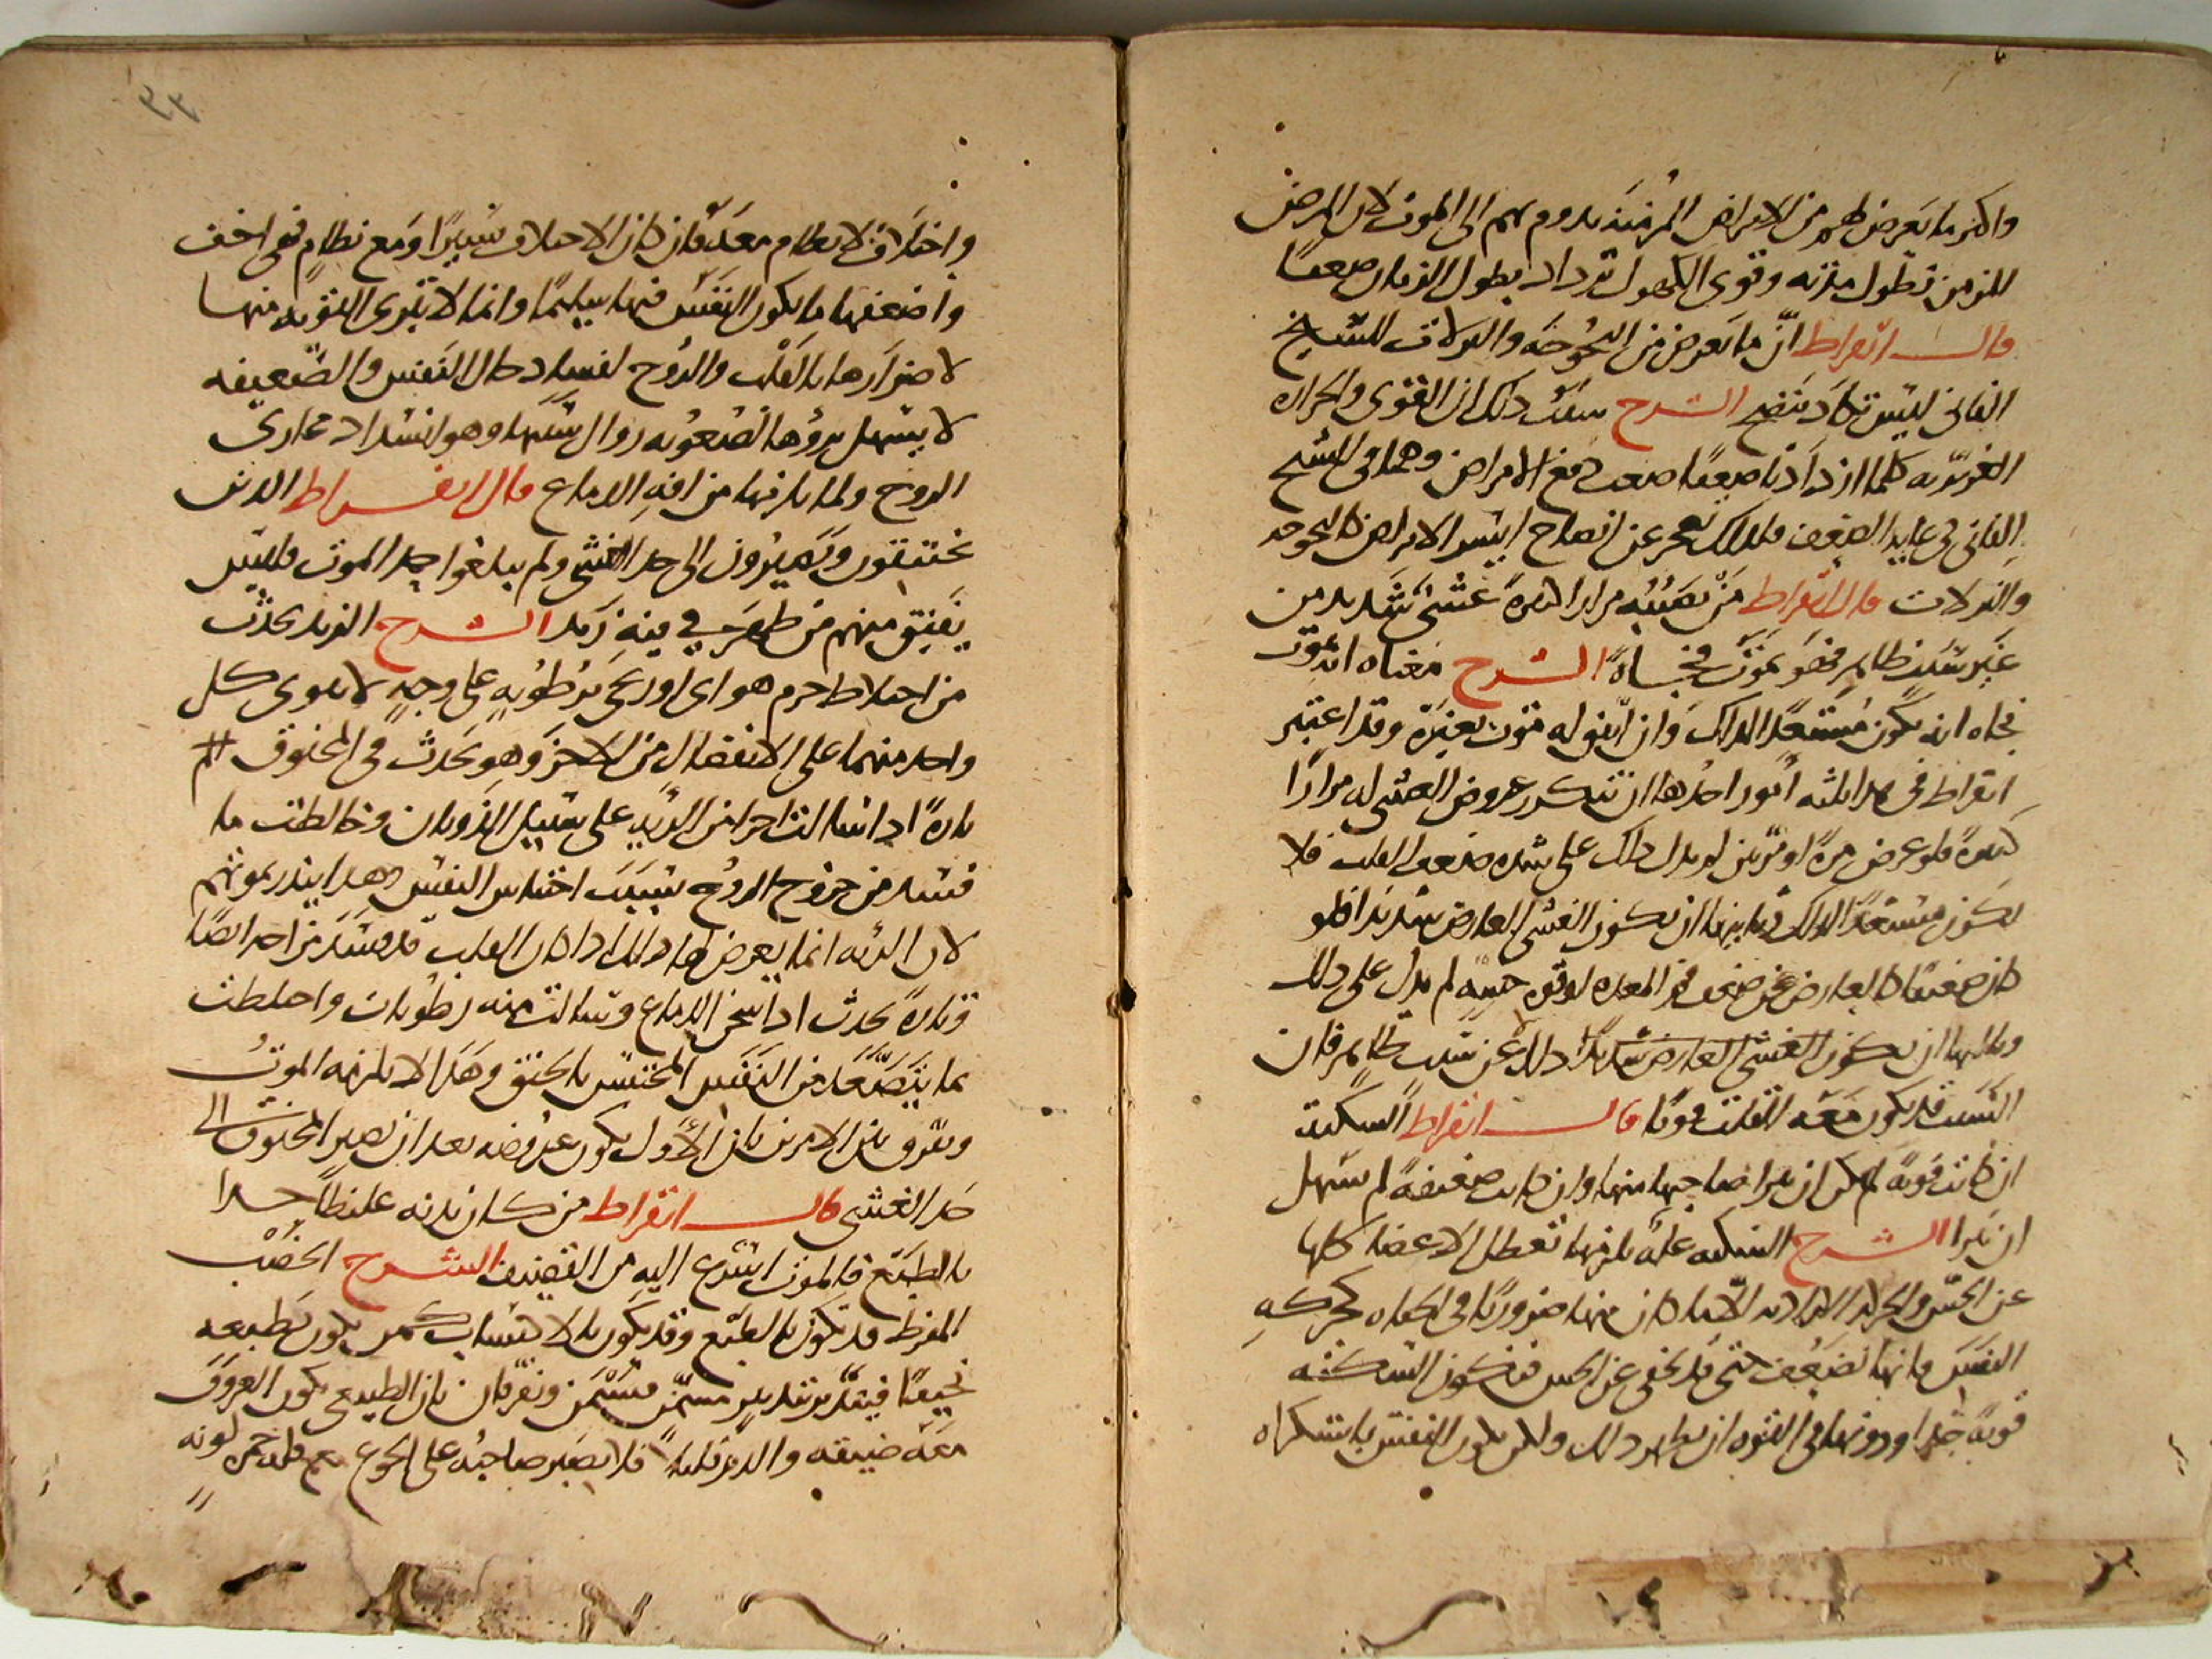 واكثر ما يعرض لهم من الامراض المزمنة يدوم بهم الى الموت لان المرض
المزمن تطول مدته وقوى الكهول تزداد بطول الزمان ضعفا
قال ابقراط ان ما يعرض من البحوحة والنزلات للشيخ
الفانى ليس تكاد ينضج الشرح سبب ذلك ان القوى والحرارة
الغريزية كلما ازدادتا ضعفا صعب دفع الامراض وهما فى الشيخ
الفانى فى غاية الضعف فلذلك تعجز عن انضاج ايسر الامراض كالبحوحة
والنزلات قال ابقراط من يصيبه مرارا كثيرة غشى شديد من
غير سبب ظاهر فهو يموت فجاة الشرح معناه انه يموت
فجاه انه يكون مستعدا لذلك وان اتفق له موت بغيره وقد اعتبر
ابقراط فى هذا ثلثه امور احدها ان تتكرر عروض الغشى له مرارا
كثيرة فلو عرض مرة او مرتين لم يدل ذلك على شده ضعف القلب فلا
يكون مستعدا لذلك وثانيها ان يكون الغشى العارض شديدا فلو
كان ضعيفا كالعارض عن ضعف فم المعده لقوه حسه لم يدل على ذلك
وثالثها ان يكون الغشى العارض شديدا ذلك لا عن سبب ظاهر فان
السبب قد يكون معه القلب قويا قال ابقراط السكتة
ان كانت قوية لم يمكن ان يبرا صاحبها منها وان كانت ضعيفة لم يسهل
ان يبرا الشرح السكته علة يلزمها تعطل الاعضا كلها
عن الحس والحركة الارادية الا ما كان منها ضروريا فى الحياه كحركة
النفس فانها تضعف حتى قد تخفى عن الحس فتكون السكته
قوية جدا ودونها فى القوه ان يظهر ذلك ولكن يكون التنفس باستكراه
٩٣
واختلاف لا نظام معه فان كان الاختلاف يسيرا ومع نظام فهى اخف
واضعفها ما يكون النفس فيها سليما وانما لا تبرى القوية منها
لاضرارها بالقلب والروح لفساد حال النفس والضعيفه
لا يسهل برؤها لصعوبه زوال سببها وهو انسداد مجارى
الروح ولما يلزمها من افة الدماغ قال ابقراط الذين
يختنقون ويصيرون الى حد الغشى ولم يبلغوا حد الموت فليس
يفيق منهم من ظهر فى فيه زبد الشرح الزبد يحدث
من اختلاط جرم هواى او ريحى برطوبه على وجه لا يقوى كل
واحد منهما على الانفصال من الاخر وهو يحدث فى المخنوق #
تارة اذا سالت اجزا من الرية على سبيل الذوبان وخالطت ما
فسد من خروج الروح بسبب احتباس النفس وهذا ينذر بموتهم
لان الريه انما يعرض لها ذلك اذا كان القلب قد فسد مزاجه ايضا
وتارة يحدث اذا سخن الدماغ وسالت منه رطوبات واختلطت
بما يتصعد من النفس المحتبس بالخنق وهذا لا يلزمه الموت
ويفرق بين الامرين بان الاول يكون عروضه بعد ان يصير المخنوق الى
حد الغشى قال ابقراط من كان بدنه غليظا جدا
بالطبع فالموت اسرع اليه من القضيف الشرح الخصب
المفرط قد يكون بالطبع وقد يكون بالاكتساب كمن يكون بطبعه
نحيفا فيتدبر بتدبير مسمن فيسمن ويفرقان بان الطبيعى يكون العروق
معه ضيقه والدم قليلا فلا يصبر صاحبه على الجوع مع قلة حمرة لونه